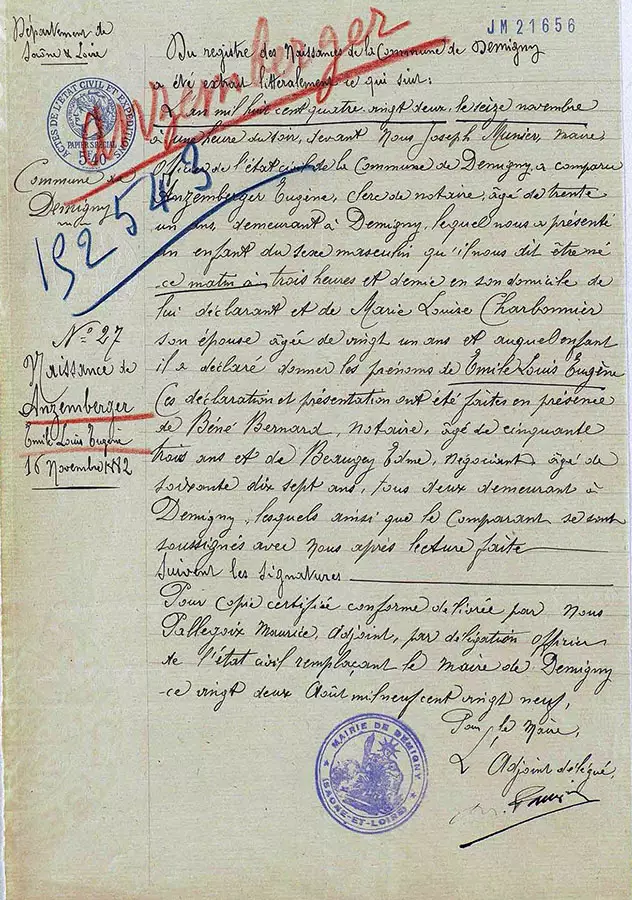 Département de
Saône & Loire
JM 21656
Anzemberger
ACTES DE L'ÉTAT CIVIL ET EXPÉDITIONS
PAPIER SPÉCIAL
5F40
Commune de
Demigny
192543
Du registre des Naissances de la Commune de Demigny
a été extrait littéralement ce qui suit:
L'an mil huit cent quatre vingt deux le seize novembre
à une heure du soir, devant Nous Joseph Munier, maire
Officier de l'état civil de la Commune de Demigny, a comparu
Anzemberger Eugène, Clerc de notaire, âgé de trente
un ans, demeurant à Demigny, lequel nous a présenté
un enfant du sexe masculin qu'il nous dit être né
ce matin à trois heures et demie en son domicile de
lui déclarant et de Marie Louise Charbonnier
son épouse âgée de vingt un ans et auquel enfant
il a déclaré donner les prénoms de Emile Louis Eugène
Ces déclaration et présentation ont été faites en présence
de Béné Bernard, notaire, âgé de cinquante
trois ans et de Beaugey Edme, négociant âgé de
soixante dix sept ans, tous deux demeurant à
Demigny, lesquels ainsi que le Comparant se sont
soussignés avec Nous après lecture faite
Suivent les signatures
Pour copie certifiée conforme délivrée par Nous
Pallegoix Maurice, Adjoint, par délégation Officier
de l'état civil remplaçant le maire de Demigny
ce vingt deux Août mil neuf cent vingt neuf,
Pour le Maire,
L'Adjoint délégué,
N° 27
Naissance de
Anzemberger
Emile Louis Eugène
16 Novembre 1882
MAIRIE DE DEMIGNY
(SAÔNE-ET-LOIRE)